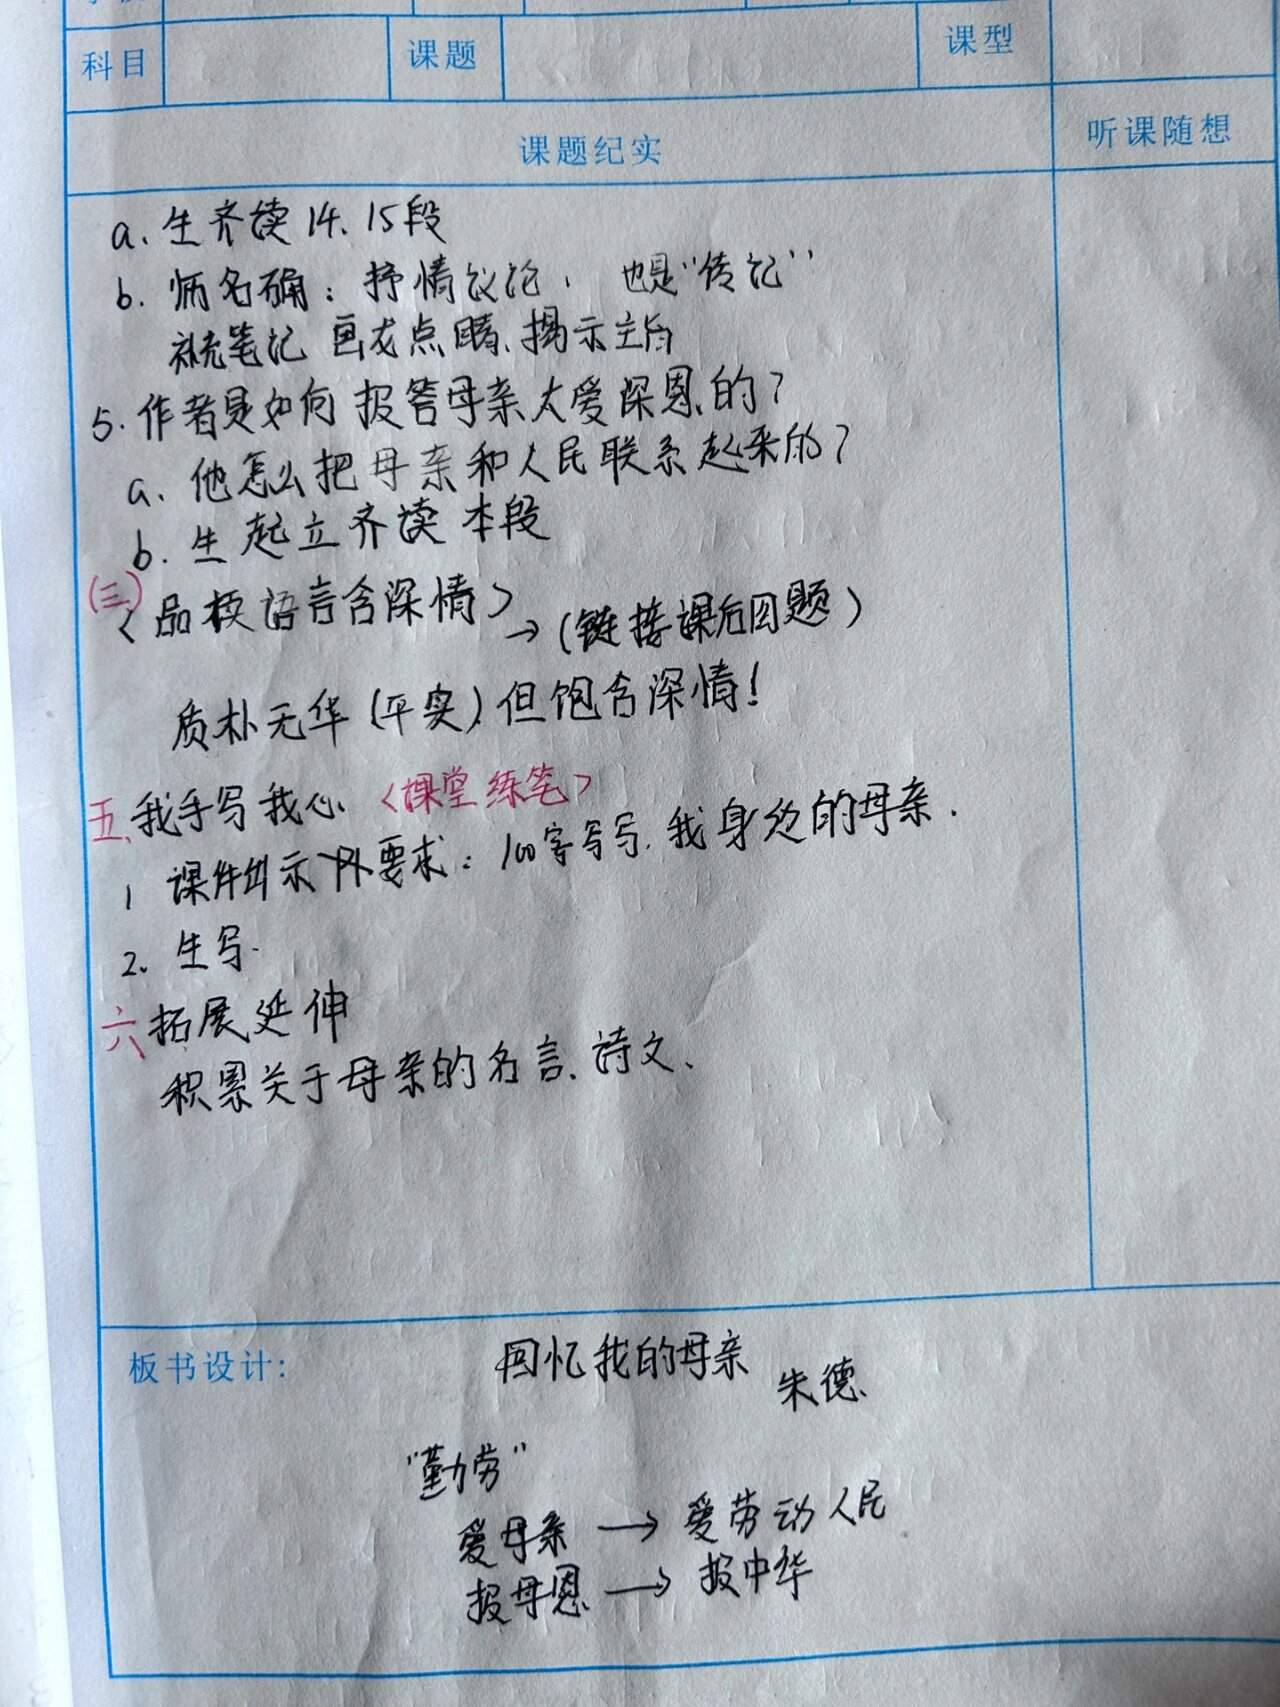 科目 课题 课型
课题纪实 听课随想
a. 生齐读14、15段
b. 师名确：抒情议论， 也是“传记”
补充笔记 画龙点睛、揭示主旨
5. 作者是如何报答母亲大爱深恩的？
a. 他怎么把母亲和人民联系起来的？
b. 生起立齐读本段
(三)
〈品模语言含深情〉→(链接课后四题)
质朴无华(平实)但饱含深情！
五、我手写我心〈课堂练笔〉
1 课件出示 要求：100字写写.我身边的母亲.
2. 生写.
六、拓展延伸
积累关于母亲的名言、诗文、
板书设计: 回忆我的母亲
朱德
“勤劳”
爱母亲 → 爱劳动人民
报母恩 → 报中华